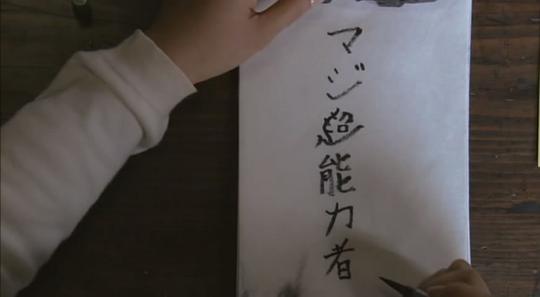 マジ超能力者